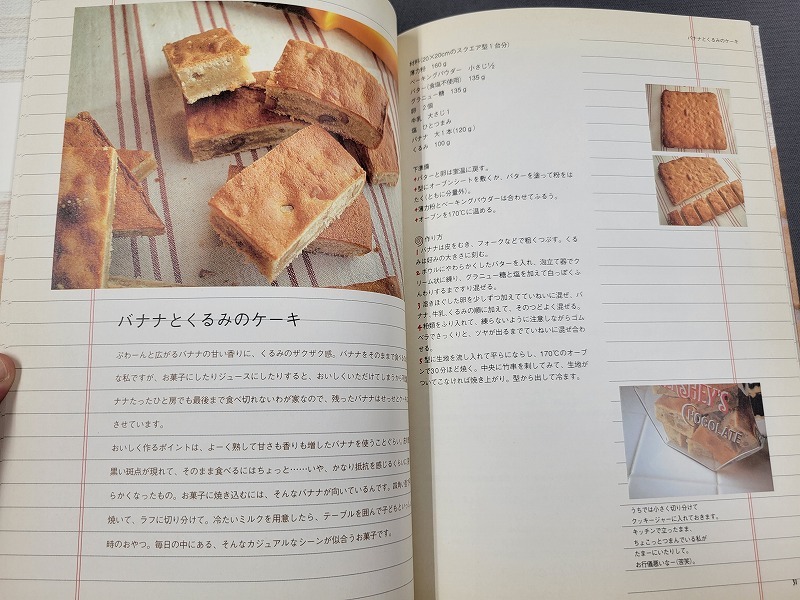 バナナとくるみのケーキ
ぶわーんと広がるバナナの甘い香りに、くるみのザクザク感。バナナをそのままで食べる
な私ですが、お菓子にしたりジュースにしたりすると、おいしくいただけてしまうから
ナナたったひと房でも最後まで食べ切れないわが家なので、残ったバナナはせっせと
させています。
おいしく作るポイントは、よーく熟して甘さも香りも増したバナナを使うことぐらい。
黒い斑点が現れて、そのまま食べるにはちょっと……いや、かなり抵抗を感じるくらいに
らかくなったもの。お菓子に焼き込むには、そんなバナナが向いているんです。
焼いて、ラフに切り分けて。冷たいミルクを用意したら、テーブルを囲んで子どもと
時のおやつ。毎日の中にある、そんなカジュアルなシーンが似合うお菓子です。
バナナとくるみのケーキ
材料(20×20cmのスクエア型1台分)
薄力粉 160g
ベーキングパウダー 小さじ½
バター(食塩不使用) 135g
グラニュー糖 135g
卵 2個
牛乳 大さじ1
塩 ひとつまみ
バナナ 大1本(120g)
くるみ 100g
下準備
+バターと卵は室温に戻す。
+型にオーブンシートを敷くか、バターを塗って粉をは
たく(ともに分量外)。
+薄力粉とベーキングパウダーは合わせてふるう。
+オーブンを170℃に温める。
作り方
1 バナナは皮をむき、フォークなどで粗くつぶす。くる
みは好みの大きさに刻む。
2 ボウルにやわらかくしたバターを入れ、泡立て器でク
リーム状に練り、グラニュー糖と塩を加えて白っぽくふ
んわりするまですり混ぜる。
3 溶きほぐした卵を少しずつ加えてていねいに混ぜ、バ
ナナ、牛乳、くるみの順に加えて、そのつどよく混ぜる。
4 粉類をふり入れて、練らないように注意しながらゴム
ベラでさっくりと、ツヤが出るまでていねいに混ぜ合わ
せる。
5 型に生地を流し入れて平らにならし、170℃のオーブ
ンで30分ほど焼く。中央に竹串を刺してみて、生地が
ついてこなければ焼き上がり。型から出して冷ます。
SHEY'S
CHOCOLATE
うちでは小さく切り分けて
クッキージャーに入れておきます。
キッチンで立ったまま、
ちょこっとつまんでいる私が
たまーにいたりして。
お行儀悪いなー(苦笑)。
31